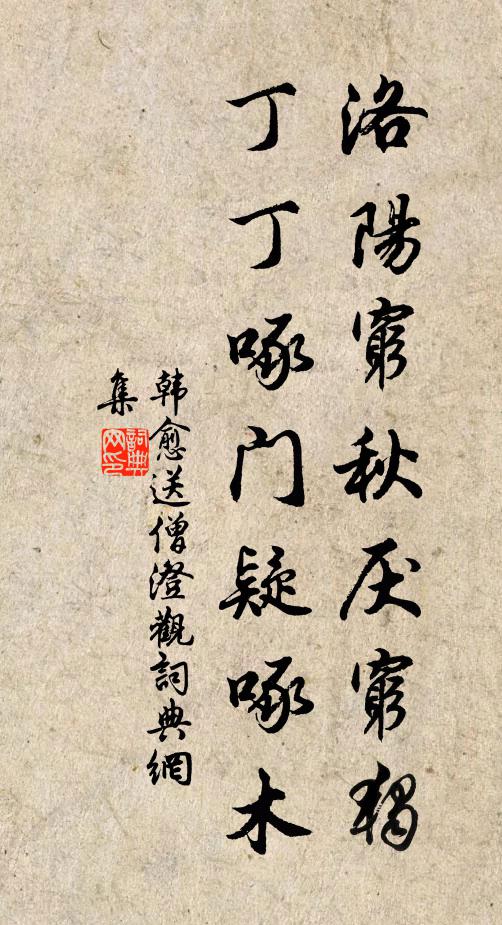 洛陽窮秋厌窮獨
丁丁啄门疑啄木
韩愈送僧澄觀詞典網
集
詞典网印